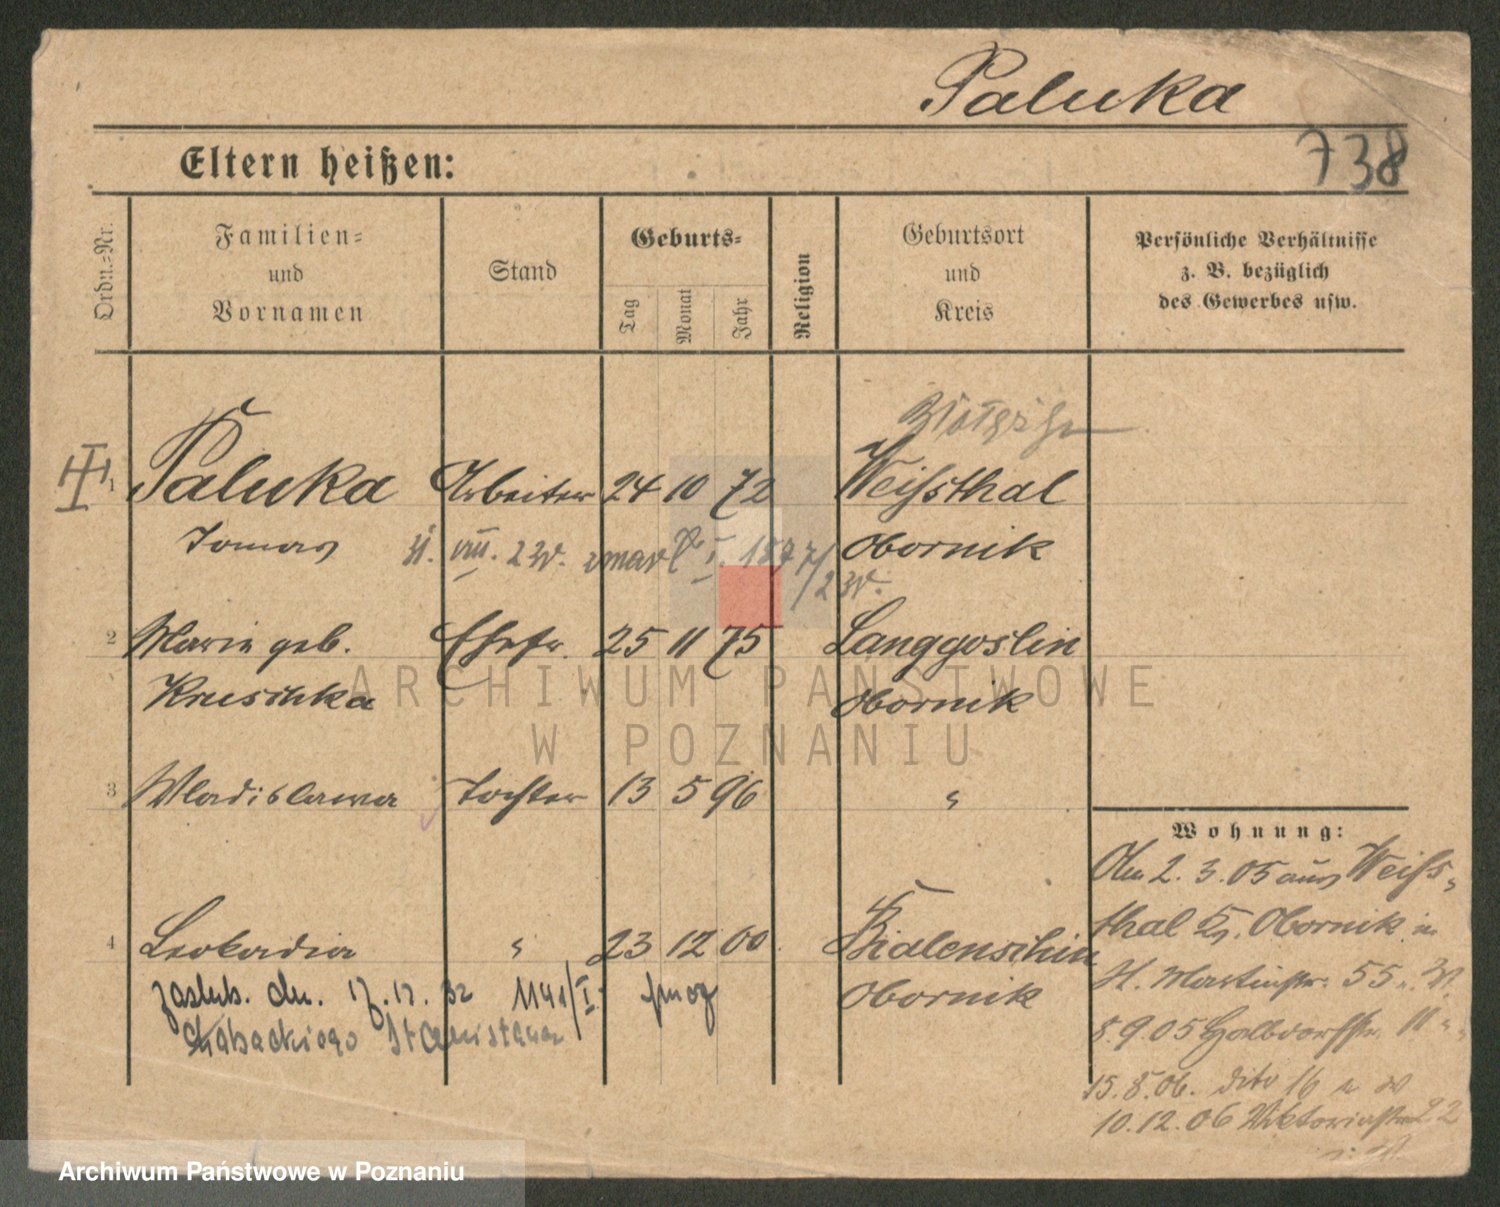 Paluka
738
Eltern heißen:
Ordn.-Nr.
Familien-
und
Vornamen
Stand
Geburts-
Tag
Monat
Jahr
Religion
Geburtsort
und
Kreis
Persönliche Verhältnisse
z. B. bezüglich
des Gewerbes usw.
1 Paluka Arbeiter 24 10 72 Weissthal
Tomas Obornik
VIII. zmarł I.
2 Marie geb. Ehefr. 25 11 75 Langgoslin
Kruschka Obornik
3 Wladislawa Tochter 13 5 96 "
4 Leokadia " 23 12 00 Bialenschin
Obornik
zaślub. dn. 17.12.32
Stanisława
Wohnung:
Am 2. 3. 05 aus Weiss-
thal Kr. Obornik in
St. Martinstr. 55
8.9.05 11
15.8.06. dito 16
10.12.06 Viktoriastr. 22
ARCHIWUM PAŃSTWOWE
W POZNANIU
Archiwum Państwowe w Poznaniu